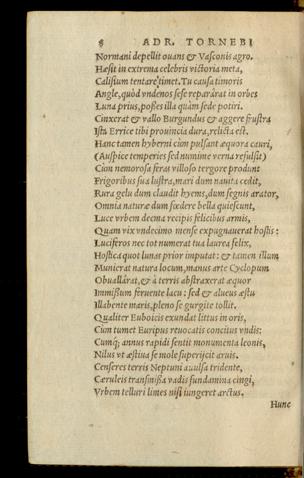 8 ADR. TORNEBI
Normani depellit ouans & Vasconis agro.
Hæsit in extrema celebris victoria meta,
Calisium tentare timet. Tu causa timoris
Angle, quòd vndenos sese reparârat in orbes
Luna prius, posses illa quàm sede potiri.
Cinxerat & vallo Burgundus & aggere frustra
Ista Errice tibi prouincia dura, relicta est.
Hanc tamen hyberni cùm pulsant æquora cauri,
(Auspice temperies sed numine verna refulsit)
Cùm nemorosa feras villoso tergore produnt
Frigoribus sua lustra, mari dum nauita cedit,
Rura gelu dum claudit hyems, dum segnis arator,
Omnia naturæ dum fœdere bella quiescunt,
Luce vrbem decma recipis felicibus armis,
Quam vix vndecimo mense expugnauerat hostis:
Luciferos nec tot numerat tua laurea felix,
Hostica quot lunas prior imputat: & tamen illum
Munierat natura locum, manus arte Cyclopum
Obuallârat, & à terris abstraxerat æquor
Immissum feruente lacu: sed & alueus æstu
Illabente maris, pleno se gurgite tollit.
Qualiter Euboicis exundat littus in oris,
Cùm tumet Euripus reuocatis concitus vndis:
Cumq; annus rapidi sentit monumenta leonis,
Nilus vt æstiua se mole superijcit aruis.
Censeres terris Neptuni auulsa tridente,
Cæruleis transmissa vadis fundamina cingi,
Vrbem telluri limes nisi iungeret arctus.
Hunc